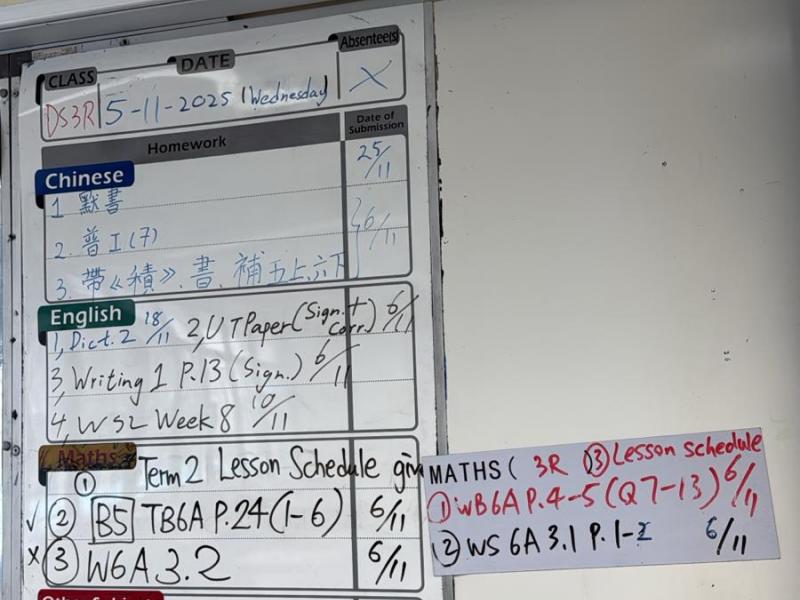 CLASS DATE Absentee(s)
DS3R 5-11-2025 (Wednesday) X
Homework Date of Submission
Chinese 25/11
1. 默書
2. 普工(7) 6/11
3. 帶《積》、書、補五上、六下
English
1, Dict. 2 18/11 2, UT Paper (Sign. + Corr.) 6/11
3, Writing 1 P.13 (Sign.) 6/11
4, WS2 Week 8 10/11
Maths
① Term 2 Lesson Schedule giv
✓ ② B5 TB6A P.24 (1-6) 6/11
× ③ W6A 3.2 6/11
MATHS ( 3R ) ③ Lesson schedule
① WB6A P.4-5 (Q7-13) 6/11
② WS 6A 3.1 P.1-2 6/11